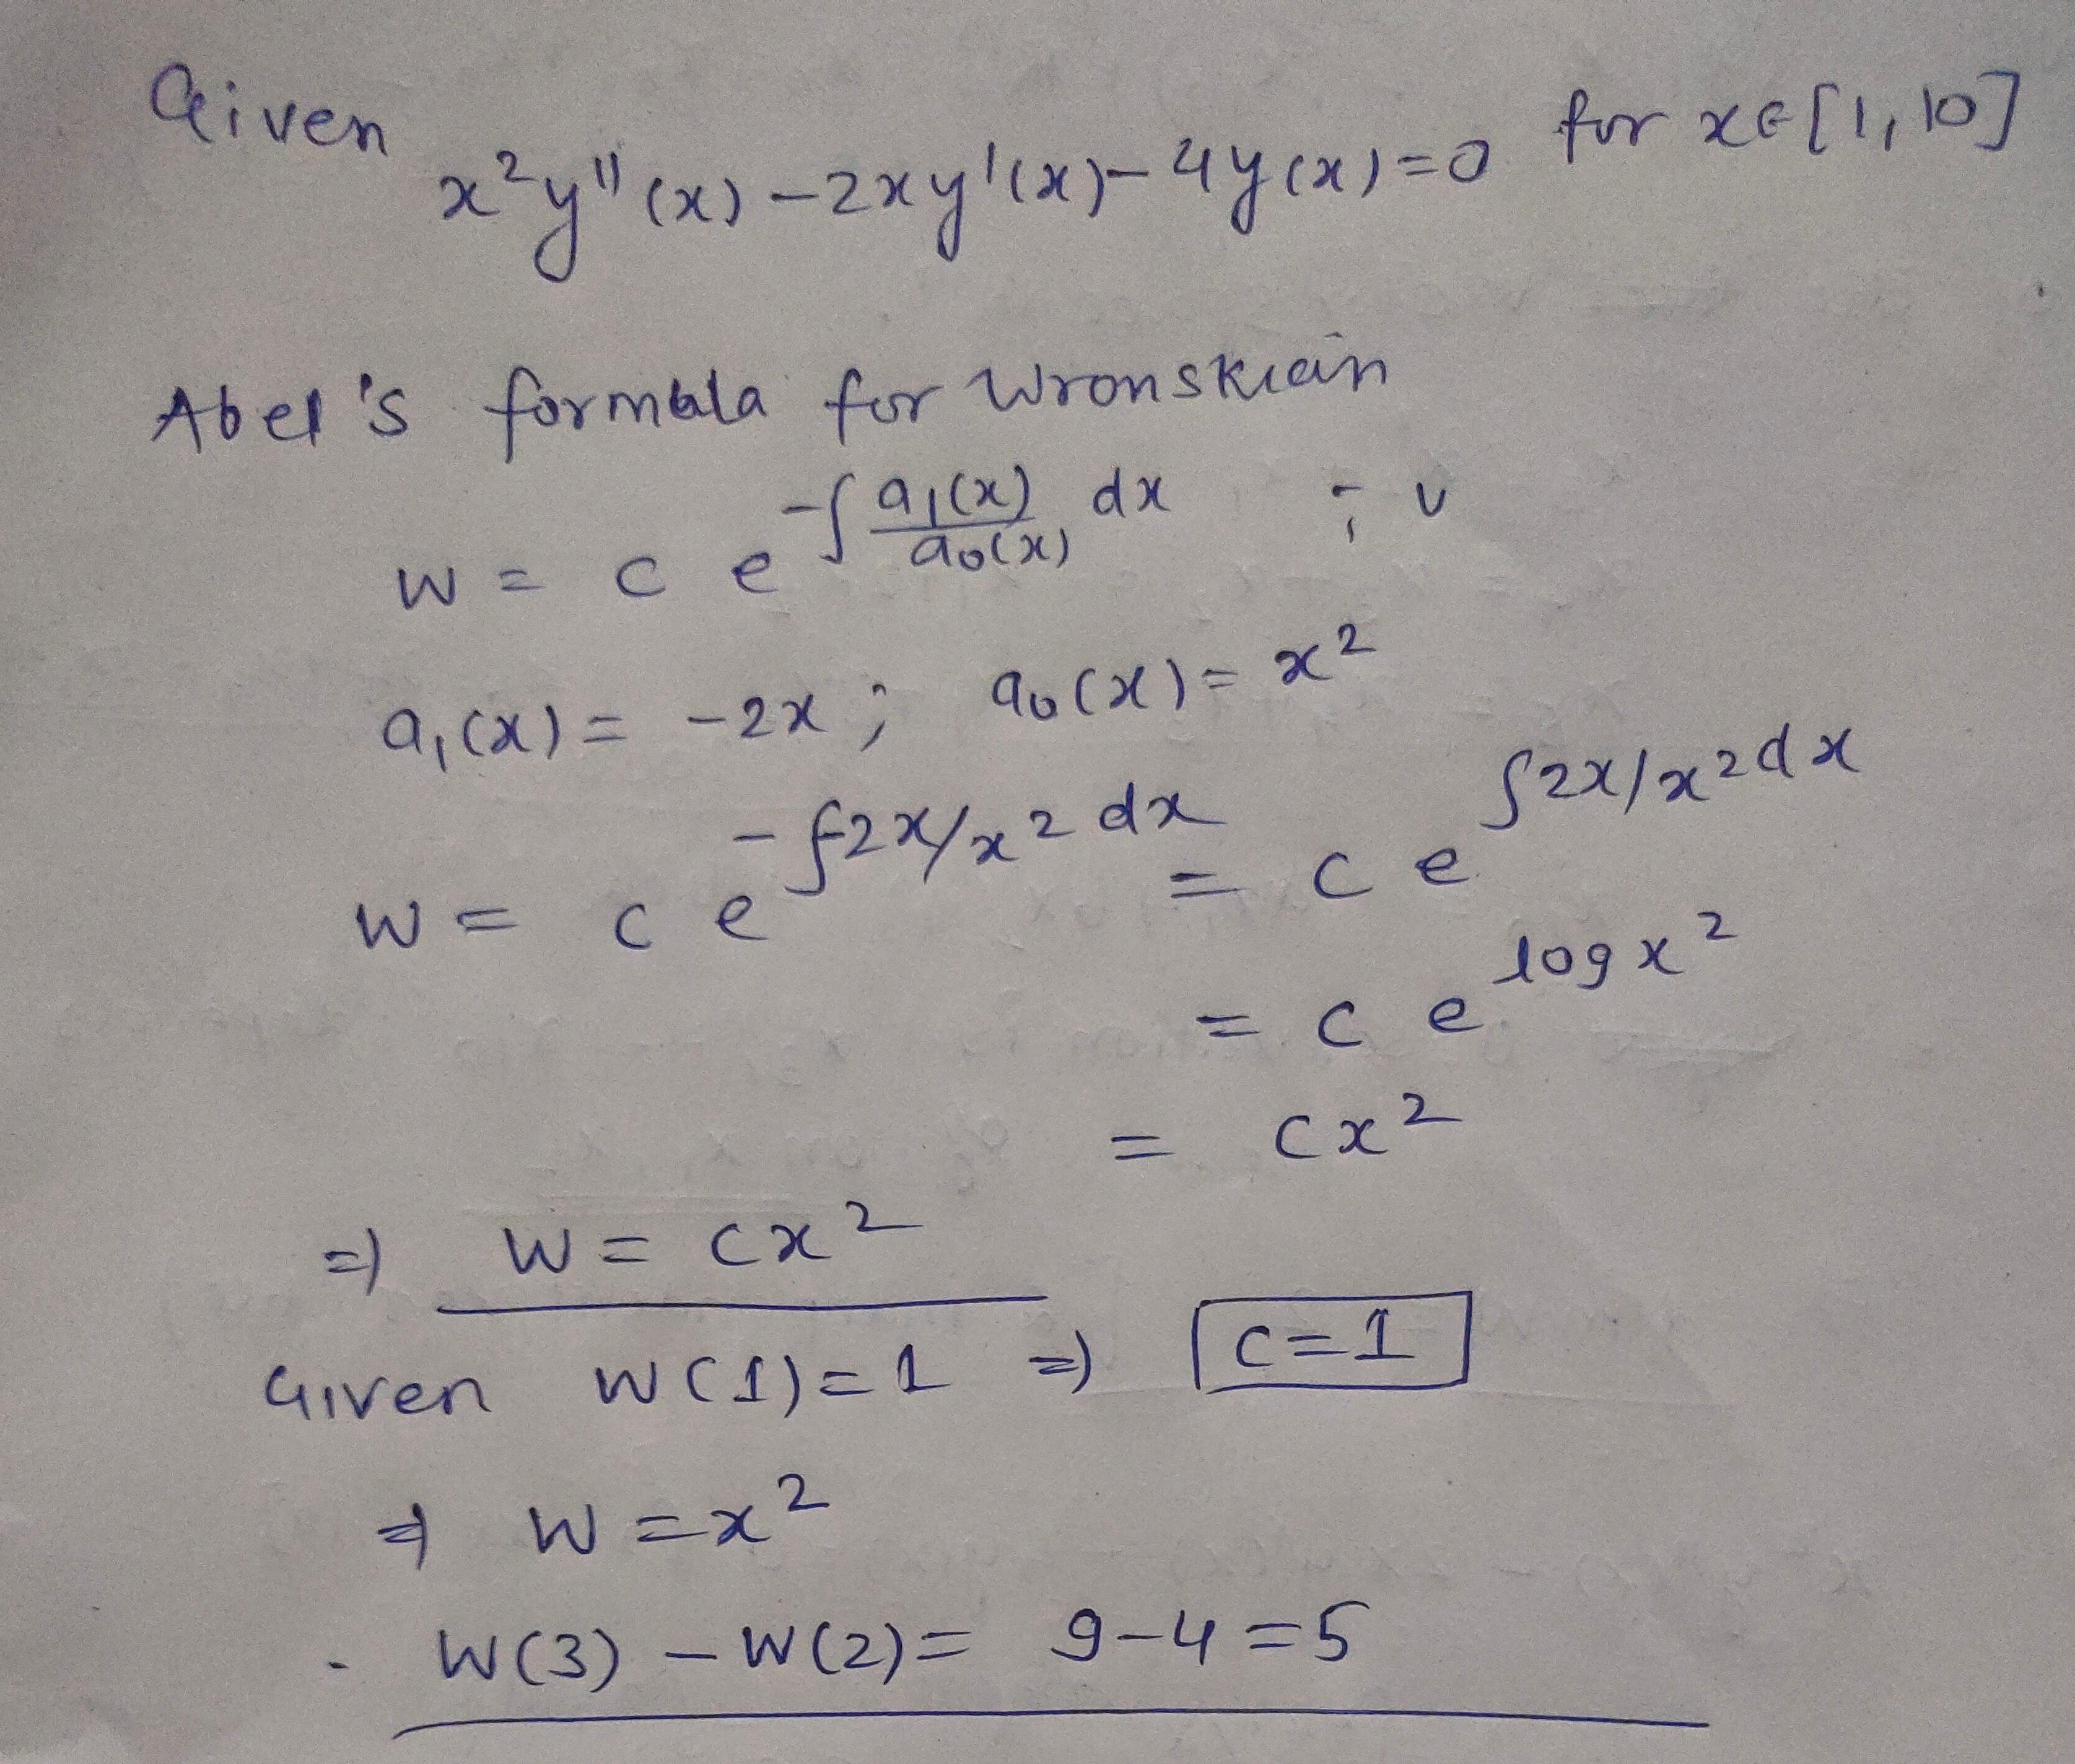 Given x²y''(x) - 2xy'(x) - 4y(x) = 0 for x∈[1,10]
Abel's formula for Wronskian
W = c e^{-∫ a₁(x)/a₀(x) dx} ;
a₁(x) = -2x ; a₀(x) = x²
W = c e^{-∫-2x/x² dx} = c e^{∫2x/x² dx}
= c e^{log x²}
= cx²
⇒ W = cx²
Given W(1) = 1 ⇒ c=1
⇒ W = x²
W(3) - W(2) = 9-4 = 5